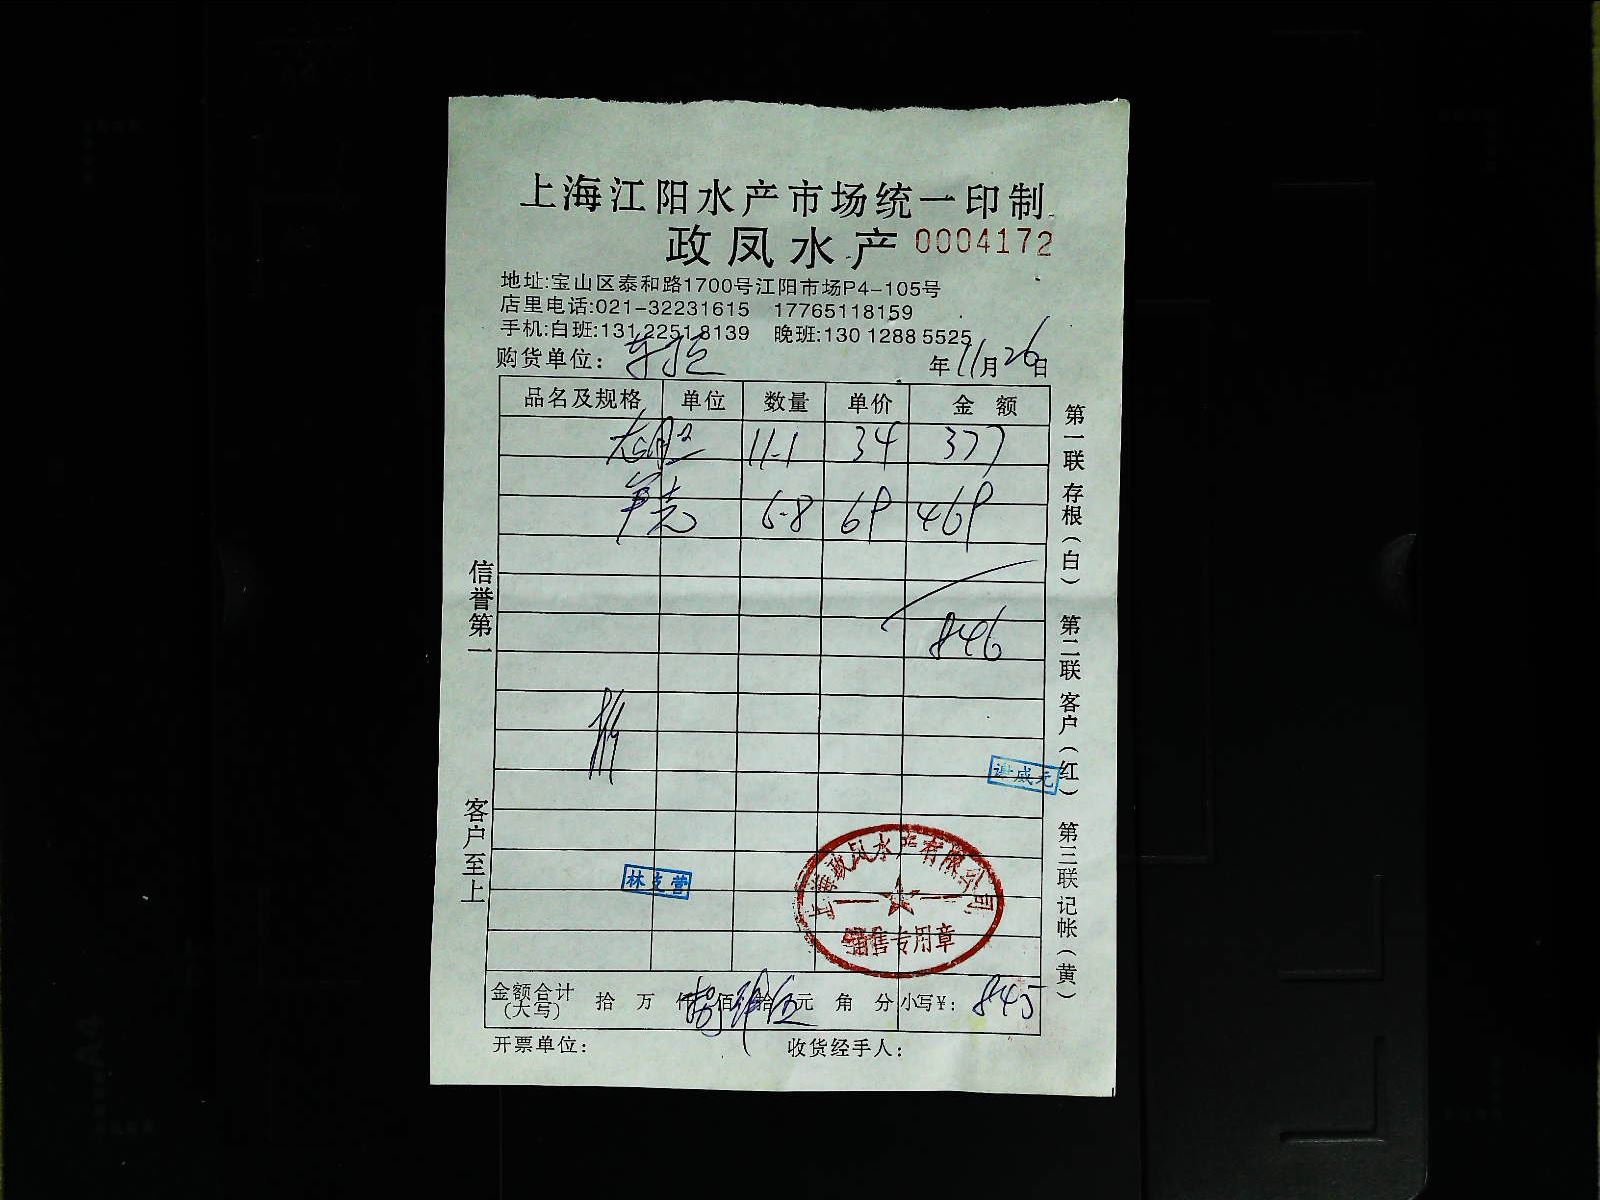 上海江阳水产市场统一印制
政凤水产 0004172
地址:宝山区泰和路1700号江阳市场P4-105号
店里电话:021-32231615 17765118159
手机:白班:131 2251 8139 晚班:130 1288 5525
购货单位: 年 11 月 26 日
品名及规格 单位 数量 单价 金额
11-1 34 377
6-8 69 469
846
信誉第一
客户至上
第一联 存根(白) 第二联 客户(红) 第三联 记帐(黄)
上海政凤水产有限公司
销售专用章
金额合计(大写) 拾 万 仟 佰 拾 元 角 分 小写¥: 845
开票单位: 收货经手人: